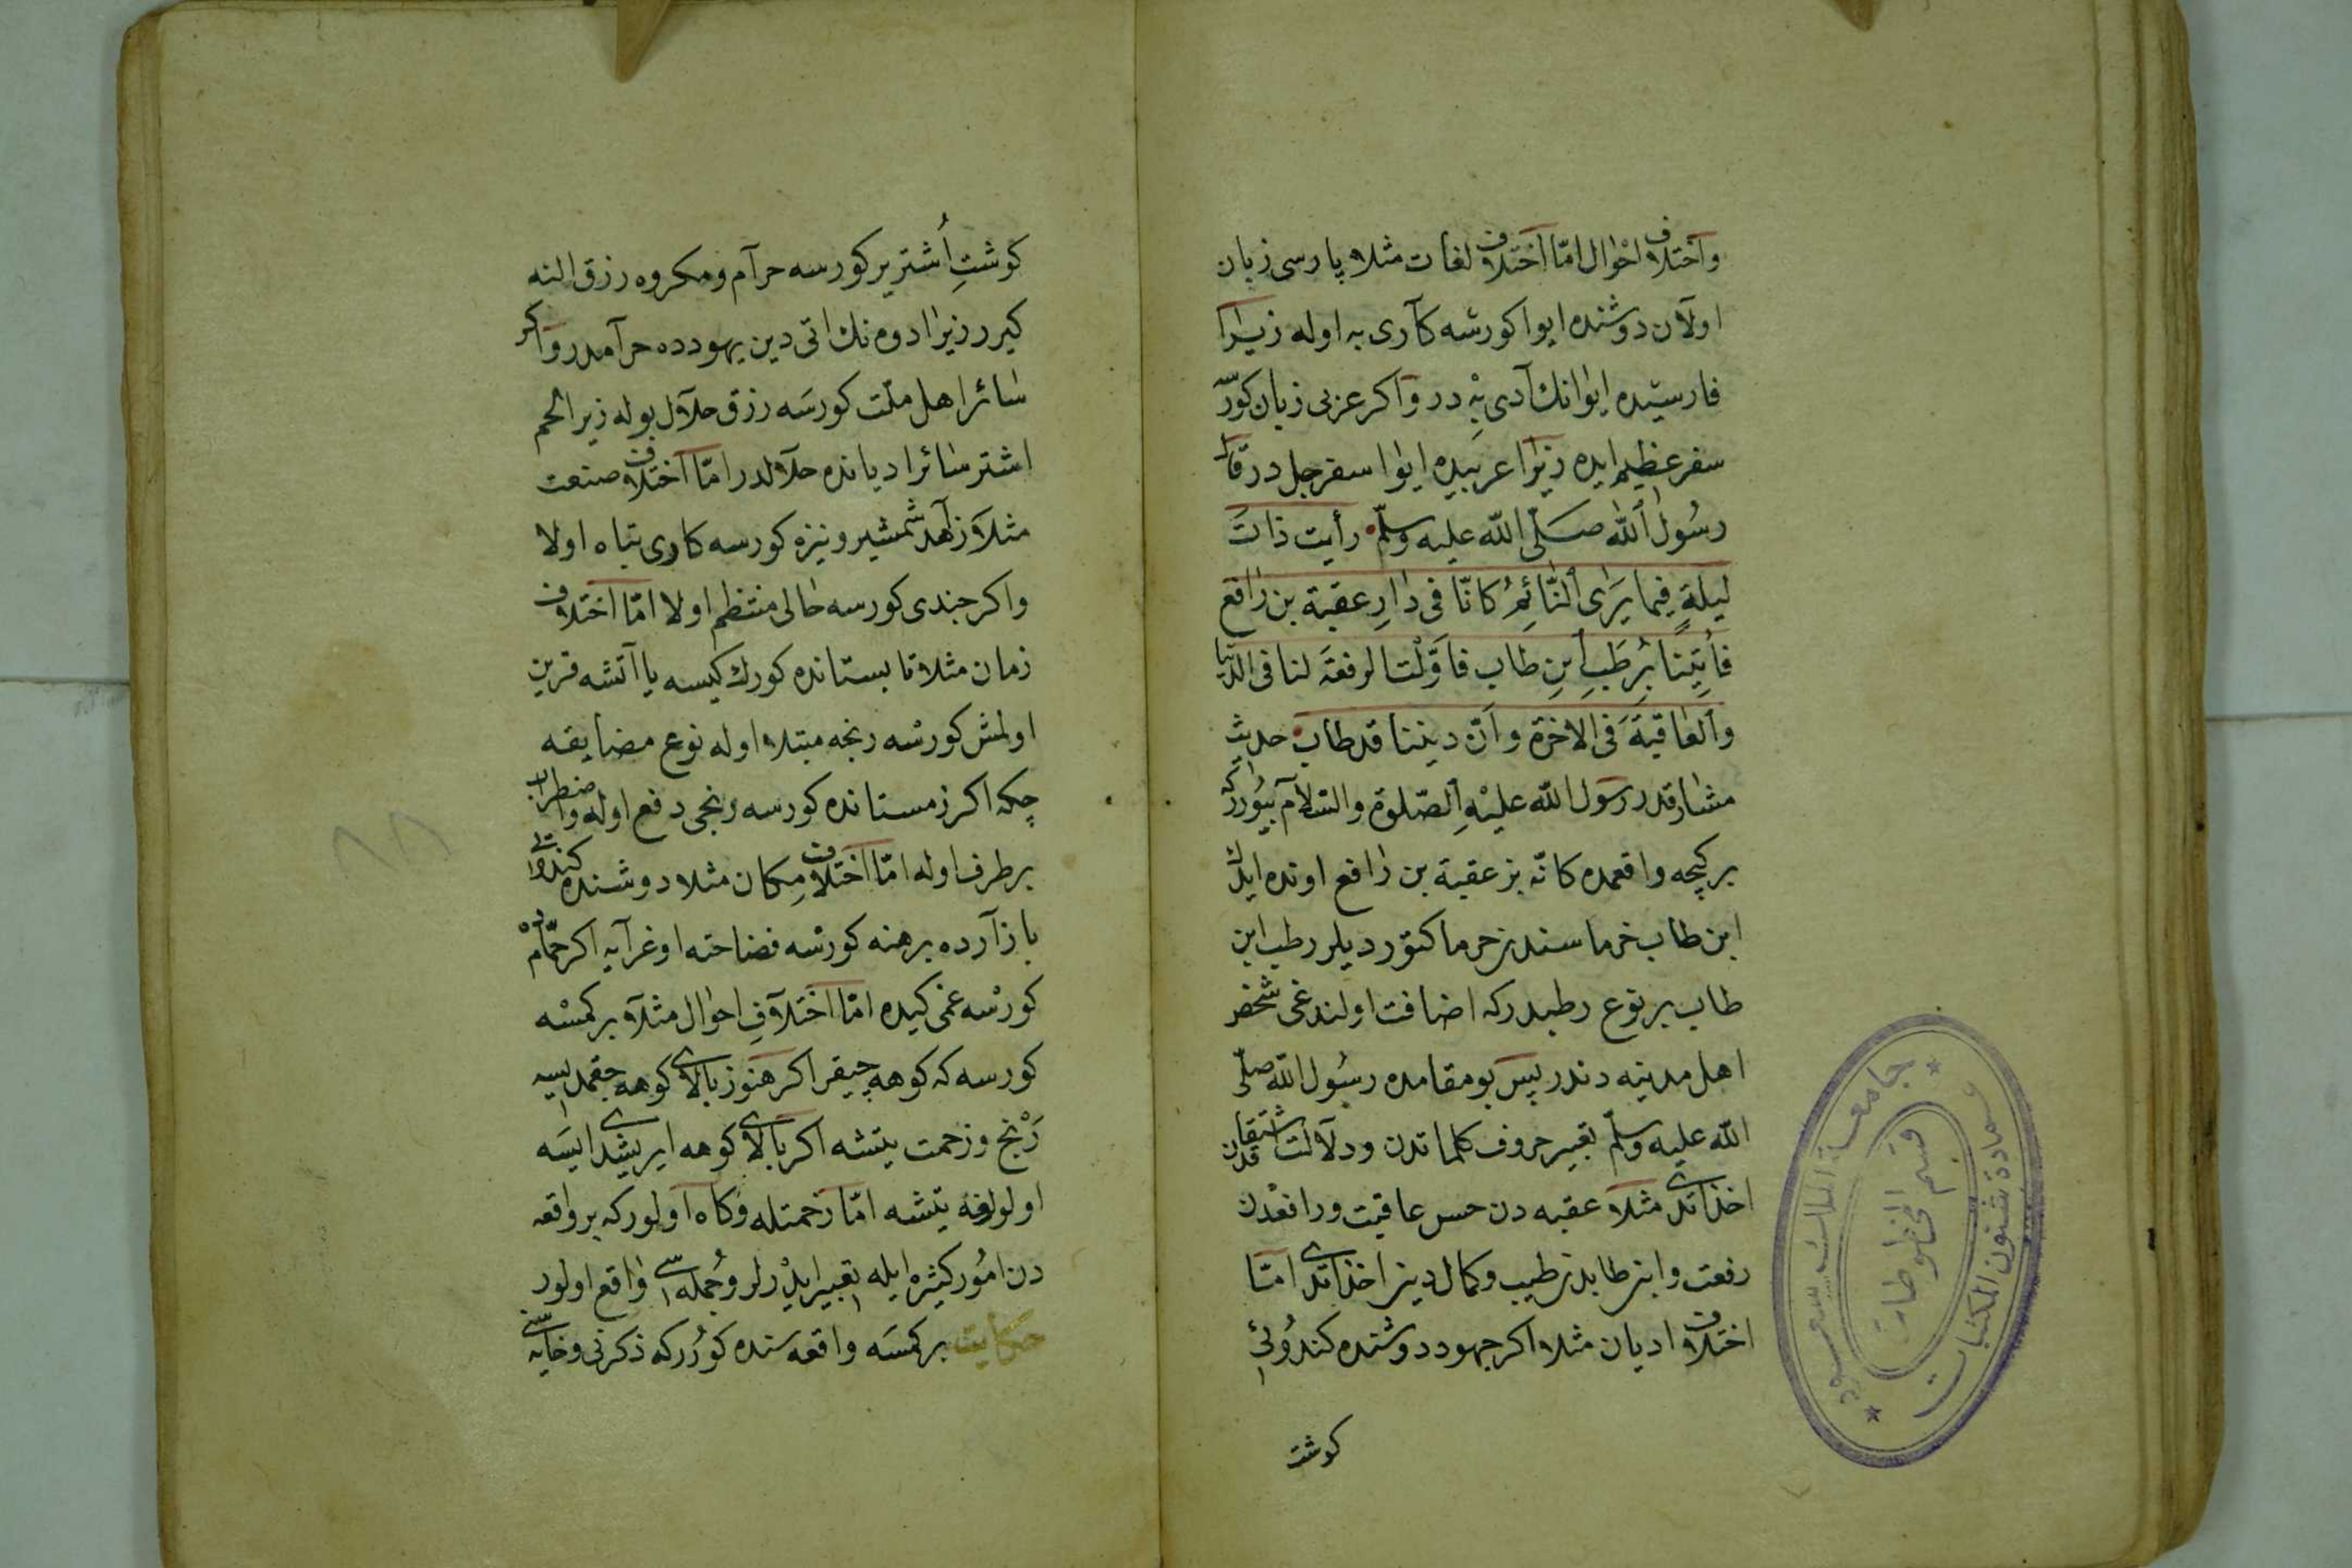 واختلاف احوال امّا اختلاف لغات مثلا پارسی زبان
اولان دوشنده ایوا کورسه کاری به اوله زیرا
فارسیده ایوانك آدی بِهْ در واکر عربی زبان کورسه
سفر عظیم ایده زیرا عربیده ایوا سفرجل در قال
رسُول الله صلّی الله علیه وسلّم رأیت ذاتَ
لیلةٍ فیما یَرَی النّائِمُ کانّا فی دارِ عقبة بن رافع
فاُتِینَا بُرطَبِ ابنِ طاب فاوّلْت الرفعَة لنا فی الدنیا
والعاقبَةَ فی الاخرة وانّ دیننا قد طاب حدیث
مشارقدر رسول الله علیْهِ الصّلوة والسّلام بیُوررکه
برکیجه واقعمده کانّه بز عقبة بن رافع اونده ایدك
ابن طاب خرماسندن خرما کتوردیلر رطب ابن
طاب بر نوع رطبدرکه اضافت اولندغی شخص
اهل مدینه دندر پس بو مقامده رسُول الله صلّی
الله علیه وسلّم تعبیر حروف کلماتدن ودلالت اشتقاقدن
اخذ ایتدی مثلا عقبه دن حسن عاقبت ورافعْدن
رفعت وابن طابدن طیب وکمال دین اخذ ایتدی امّا
اختلاف ادیان مثلا اکر جهود دوشنده کندُوئی
کوشت
کوشتِ اُشتر یر کورسه حرام ومکروه رزق النه
کیرر زیرا دوه نك اتی دین یهودده حرامدر واکر
سائر اهل ملّت کورسَه رزق حلال بوله زیرا لحم
اشتر سائر ادیانده حلالدر امّا اختلاف صنعت
مثلا زاهد شمشیر ونیزه کورسه کاری تباه اولا
واکر جندی کورسه حالی منتظم اولا امّا اختلاف
زمان مثلا تابستانده کورك کیسه یا آتشه قرین
اولمش کورسه رنجه مبتلا اوله نوع مضایقه
چکه اکر زمستانده کورسه رنجی دفع اوله واضطراب
برطرف اوله امّا اختلاف مِکان مثلا دوشنده کندوئی
بازارده برهنه کورسه فضاحته اوغرایه اکر حمّامْده
کورسه غمی کیده امّا اختلافِ احوال مثلا برکمسه
کورسه که کوهه چیقر اکر هنوز بالای کوهه چقمدیسه
رَنْج وزحمت یتشه اکر بالای کوهه ایریشدی ایسَه
اولولغه یتشه امّا زحمتله وکاه اولورکه بر واقعه
دن امُور کثیره ایله تعبیر ایدْرلر وجُمله سی واقع اولور
حکایت برکمسَه واقعه سنده کورُرکه ذکرنی وخایه سنی
جامعة الملك سعود
عمادة شئون المكتبات
قسم المخطوطات